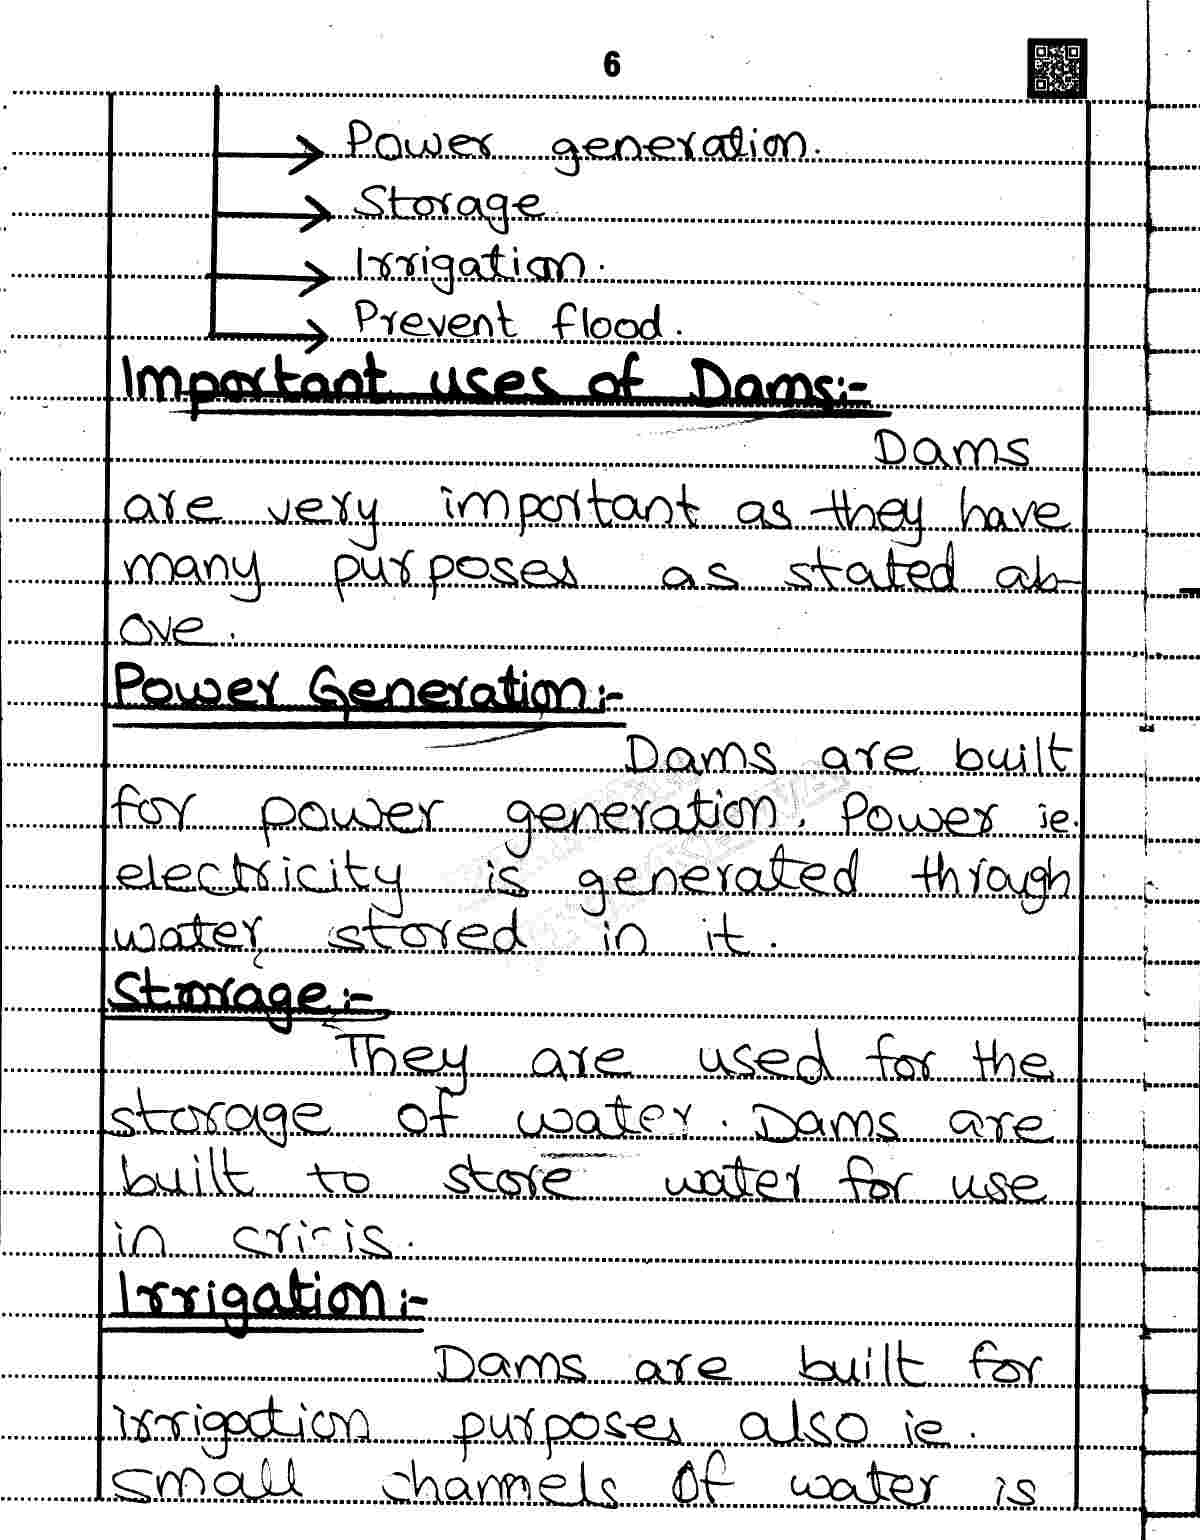 6
Power generation.
Storage
Irrigation.
Prevent flood.
Important uses of Dams:-
Dams
are very important as they have
many purposes as stated ab-
ove.
Power Generation:-
Dams are built
for power generation. Power ie.
electricity is generated through
water stored in it.
Storage:-
They are used for the
storage of water. Dams are
built to store water for use
in crisis.
Irrigation:-
Dams are built for
irrigation purposes also ie.
small channels of water is